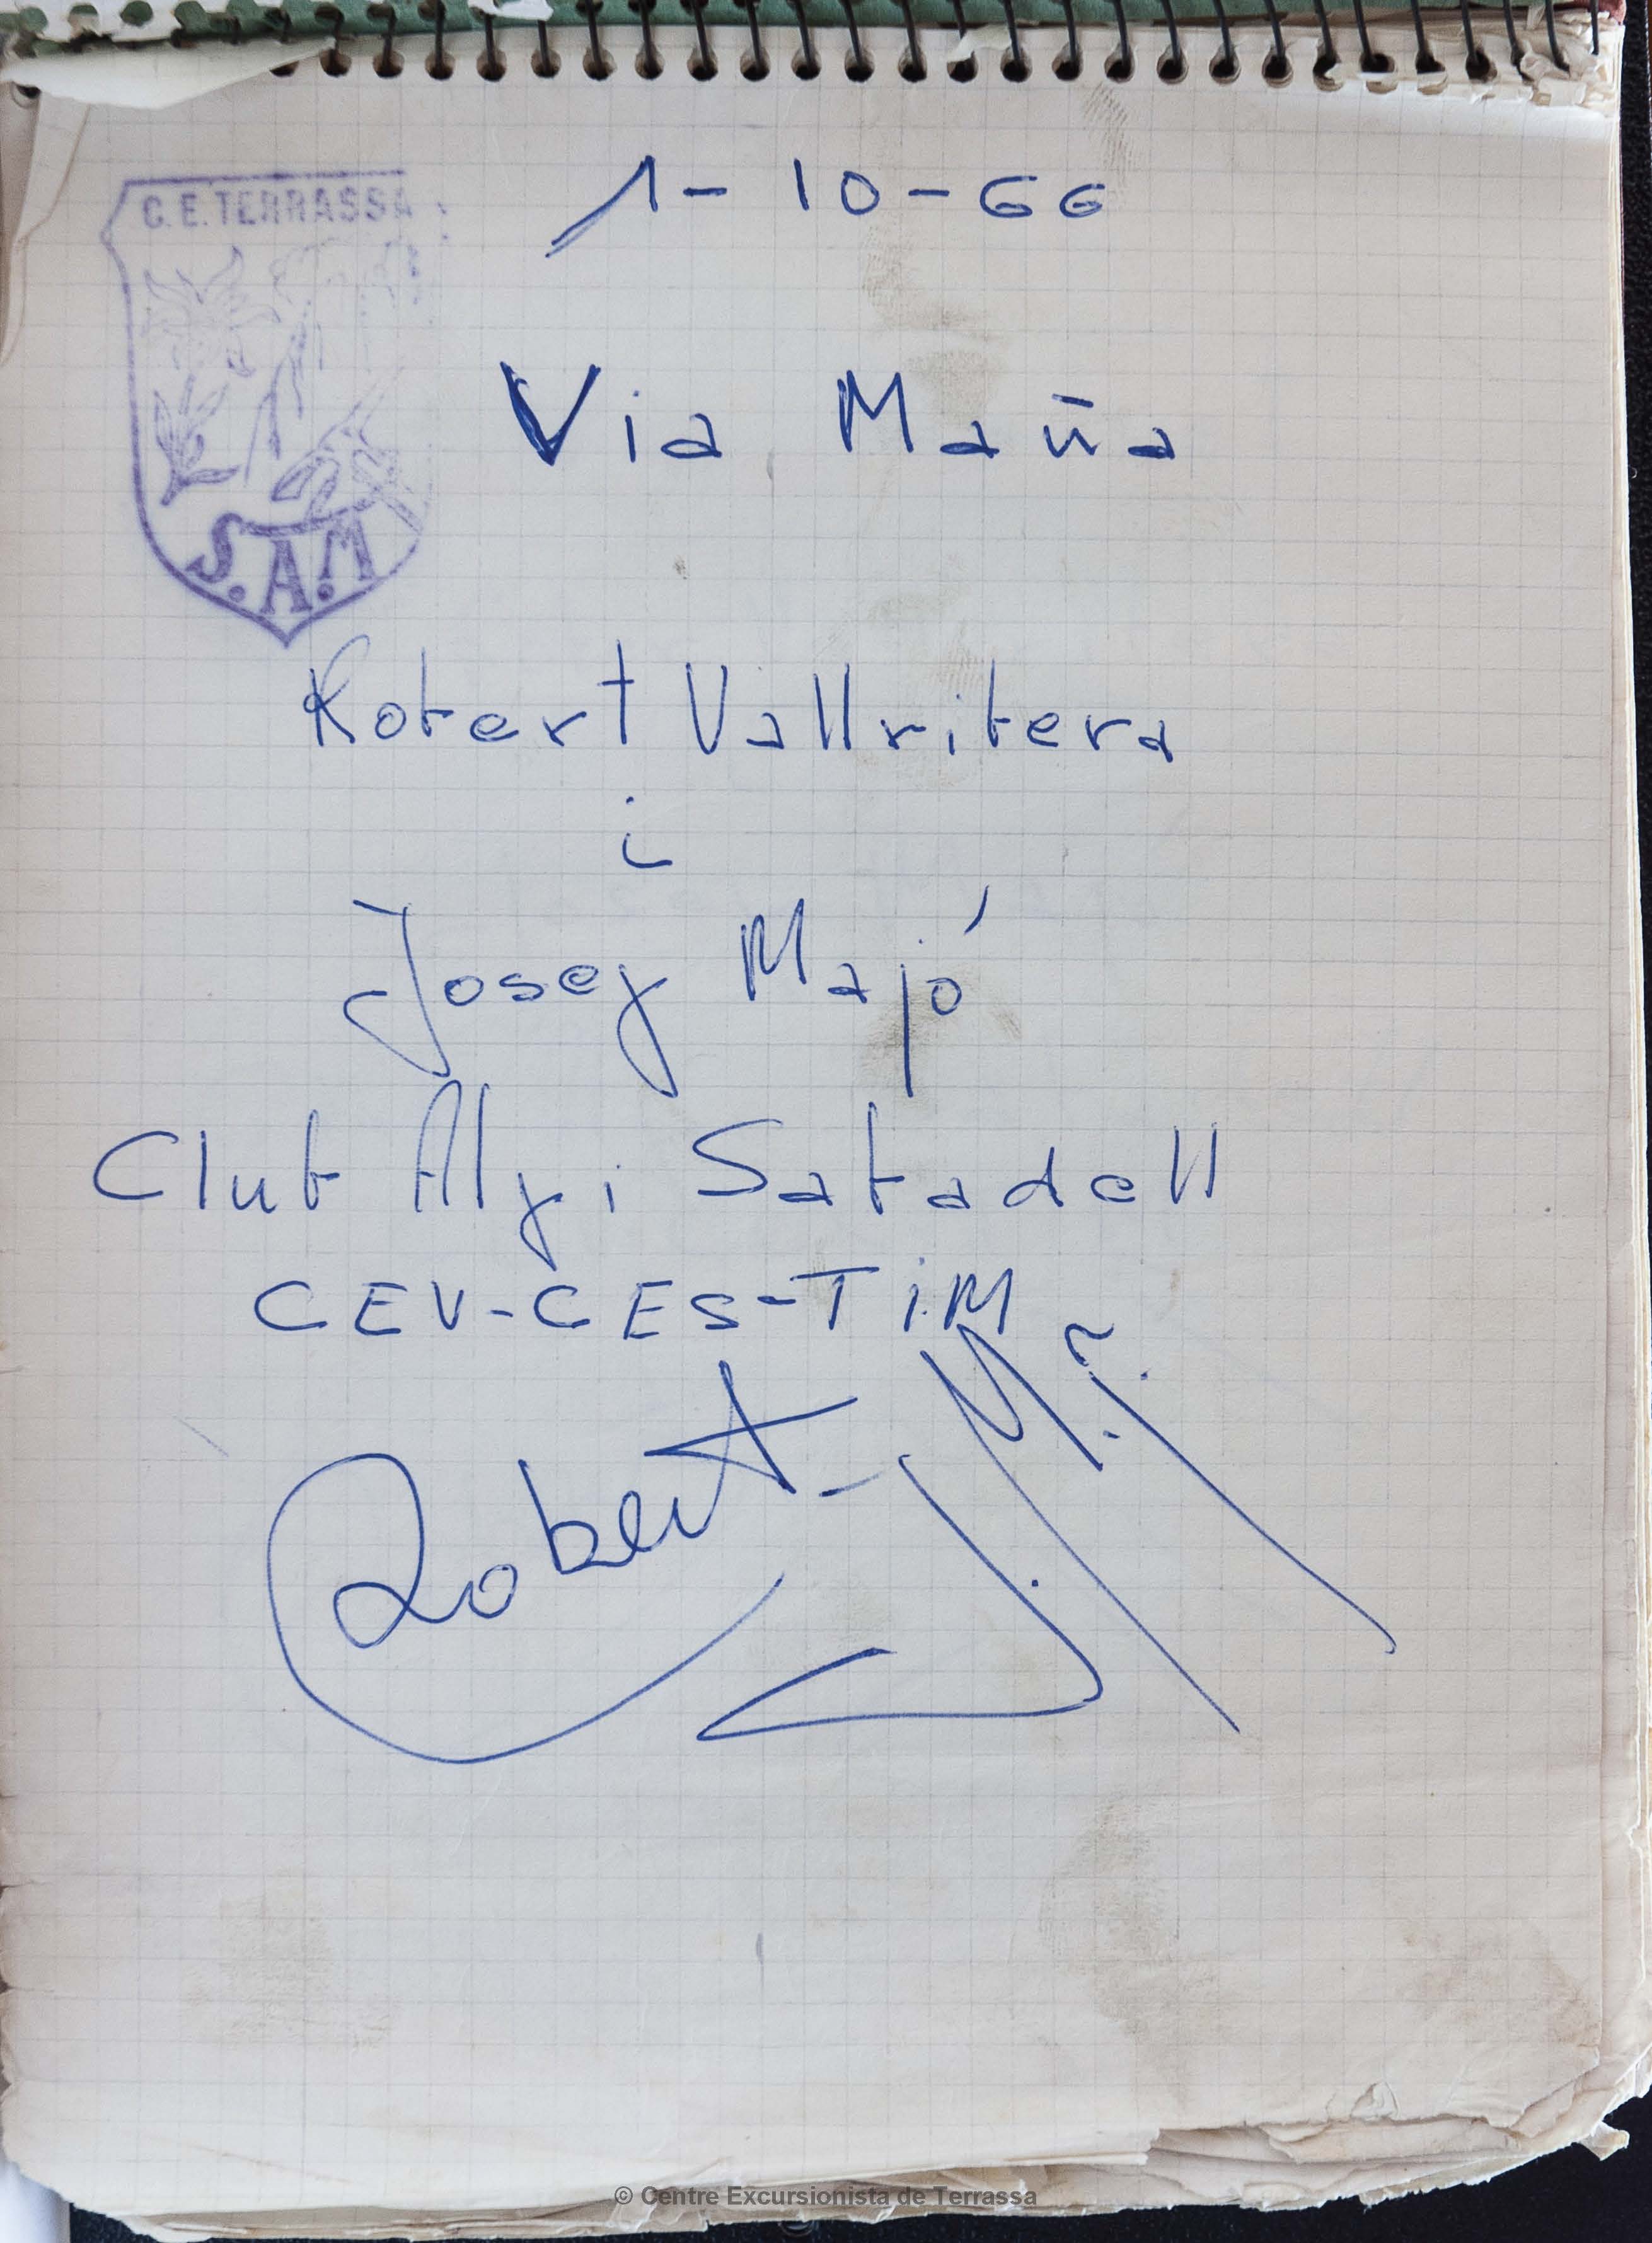 C.E. TERRASSA
S.A.M
1-10-66
Via Maña
Robert Vallribera
i
Josep Majó
Club Alpi Sabadell
CEV-CES-TIM
Robert
© Centre Excursionista de Terrassa